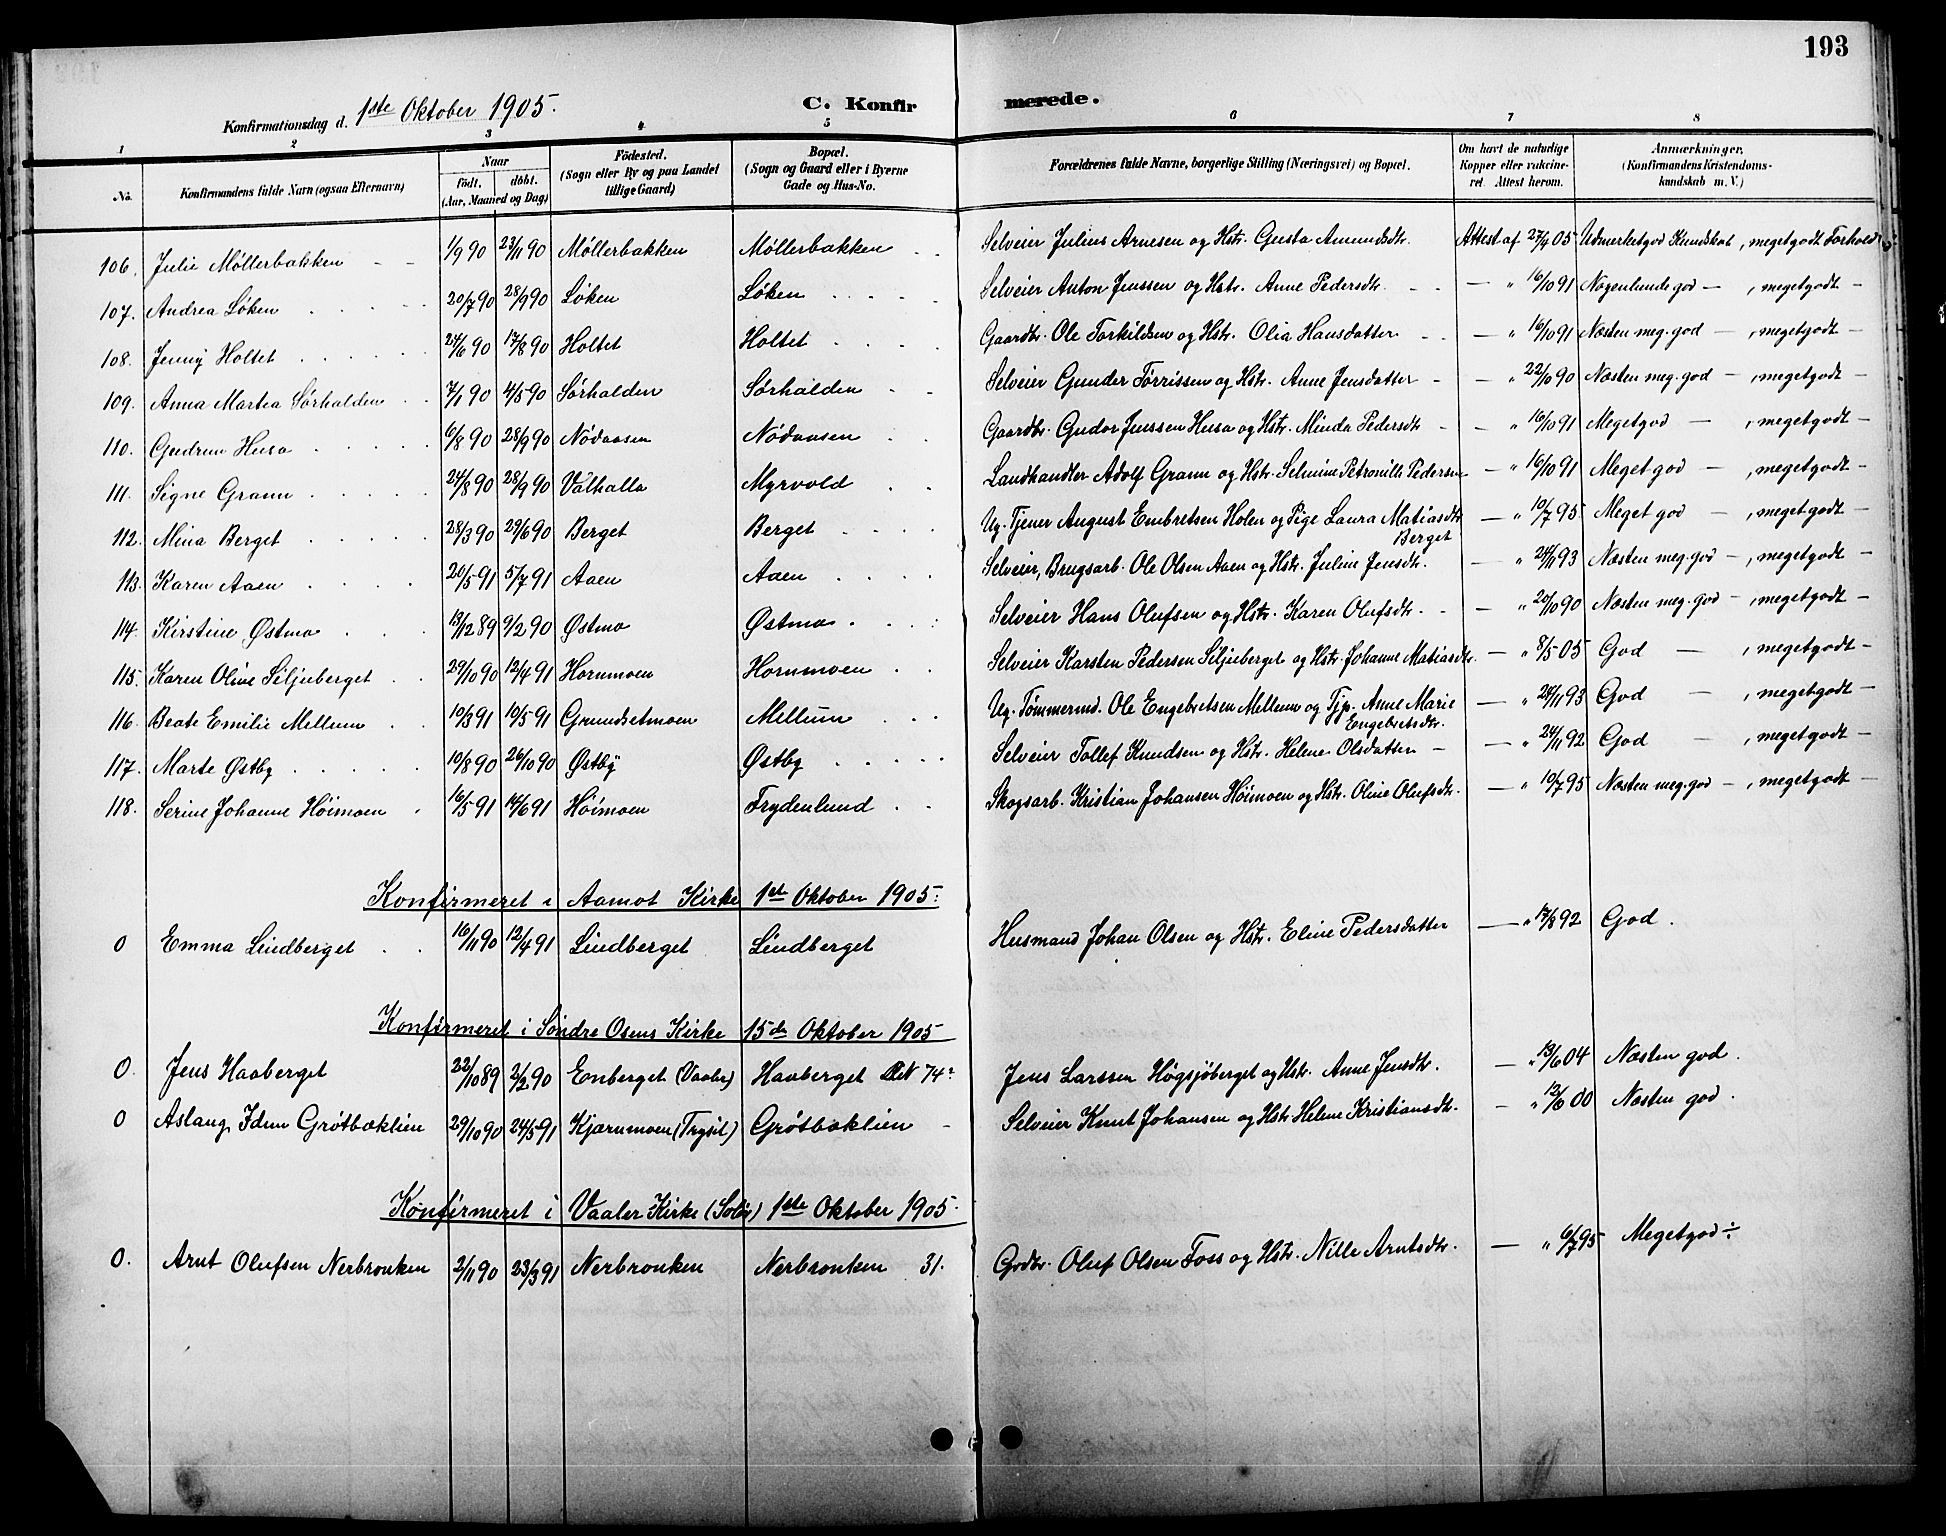 193
Konfirmationsdag d. 1ste Oktober 1905. C. Konfir merede.
1 2 3 4 5 6 7 8
No. Konfirmandens fulde Navn (ogsaa Efternavn) Naar födt, döbt. (Aar, Maaned og Dag) Födested. (Sogn eller By og paa Landet tillige Gaard) Bopæl. (Sogn og Gaard eller i Byerne Gade og Hus-No. Forældrenes fulde Navne, borgerlige Stilling (Næringsvei) og Bopæl. Om havt de naturlige Kopper eller vakcineret. Attest herom. Anmærkninger, (Konfirmandens Kristendomskundskab m. V.)
106. Julie Møllerbakken 1/9 90 23/11 90 Møllerbakken Møllerbakken Selveier Julius Arnesen og Hstr. Gusta Amundsdtr. Attest af 27/9 05 Udmerketgod Kundskab, megetgodt Forhold
107. Andrea Løken 20/7 90 28/9 90 Løken Løken Selveier Anton Jenssen og Hstr. Anne Pedersdtr. — " 16/10 91 Nogenlunde god —, megetgodt —
108. Jenny Holtet 24/6 90 17/8 90 Holtet Holtet Gaardbr. Ole Torkildsen og Hstr. Olia Hansdatter — " 16/10 91 Næsten meg. god —, megetgodt —
109. Anna Martea Sørhalden 7/1 90 4/5 90 Sørhalden Sørhalden Selveier Gunder Tørrissen og Hstr. Anne Jensdatter — " 22/10 90 Næsten meg. god —, megetgodt —
110. Gudrun Husa 6/8 90 28/9 90 Nödaasen Nödaasen Gaardbr. Gudor Jenssen Husa og Hstr. Minda Pedersdtr — " 16/10 91 Megetgod —, megetgodt —
111. Signe Grann 24/8 90 28/9 90 Valhalla Myrvold Landhandler Adolf Grann og Hstr. Selmine Petronille Pedersen — " 16/10 91 Meget god —, megetgodt —
112. Mina Berget 28/3 90 29/6 90 Berget Berget Ug. Tjener August Embretsen Holen og Pige Laura Matiasdtr. Berget — " 10/7 95 Meget god —, megetgodt —
113. Karen Aaen 20/5 91 5/7 91 Aaen Aaen Selveier, Brugsarb. Ole Olsen Aaen og Hstr. Juline Jensdtr. — " 24/11 93 Næsten meg. god —, megetgodt —
114. Kirstine Østmo 13/12 89 9/2 90 Østmo Østmo Selveier Hans Olufsen og Hstr. Karen Olufsdtr. — " 20/10 90 Næsten meg. god —, megetgodt —
115. Karen Olive Siljuberget 29/10 90 12/4 91 Hornmoen Hornmoen Selveier Karsten Pedersen Siljuberget og Hstr. Johanne Matiasdtr. — " 8/5 05 God —, megetgodt —
116. Beate Emilie Mellum 10/3 91 10/5 91 Grundsetmoen Mellum Ug. Tømmermd. Ole Engebretsen Mellum og Tjp. Anne Marie Engebretsdtr. — " 24/11 93 God —, megetgodt —
117. Marte Østby 10/8 90 26/10 90 Østby Østby Selveier Tollef Knudsen og Hstr. Helene Olsdatter — " 24/11 92 God —, megetgodt —
118. Serine Johanne Höimoen 16/5 91 14/6 91 Höimoen Frydenlund Skogsarb. Kristian Johansen Höimoen og Hstr. Oline Olufsdtr. — " 10/7 95 Næsten meg. god —, megetgodt —
Konfirmeret i Aamot Kirke 1st Oktober 1905.
0 Emma Lindberget 16/11 90 12/4 91 Lindberget Lindberget Husmand Johan Olsen og Hstr. Eline Pedersdatter — " 17/8 92 God.
Konfirmeret i Søndre Osens Kirke 15de Oktober 1905
0. Jens Haaberget 22/10 89 2/2 90 Enberget (Vaaler) Haaberget 74 Jens Larssen Högsjöberget og Hstr. Anne Jensdtr. — " 13/6 04 Næsten god.
0 Aslaug Idun Grötbæklien 29/10 90 24/5 91 Kjærnmoen (Trysil) Grötbæklien Selveier Knut Johansen og Hstr. Helene Kristiansdtr. — " 13/6 00 Næsten god.
Konfirmeret i Vaaler Kirke (Solör) 1ste Oktober 1905.
0. Arnt Olufsen Nerbronken 2/11 90 23/3 91 Nerbronken Nerbronken 31. Grdbr. Oluf Olsen Foss og Hstr. Nille Arntsdtr. — " 6/7 95 Megetgod ÷